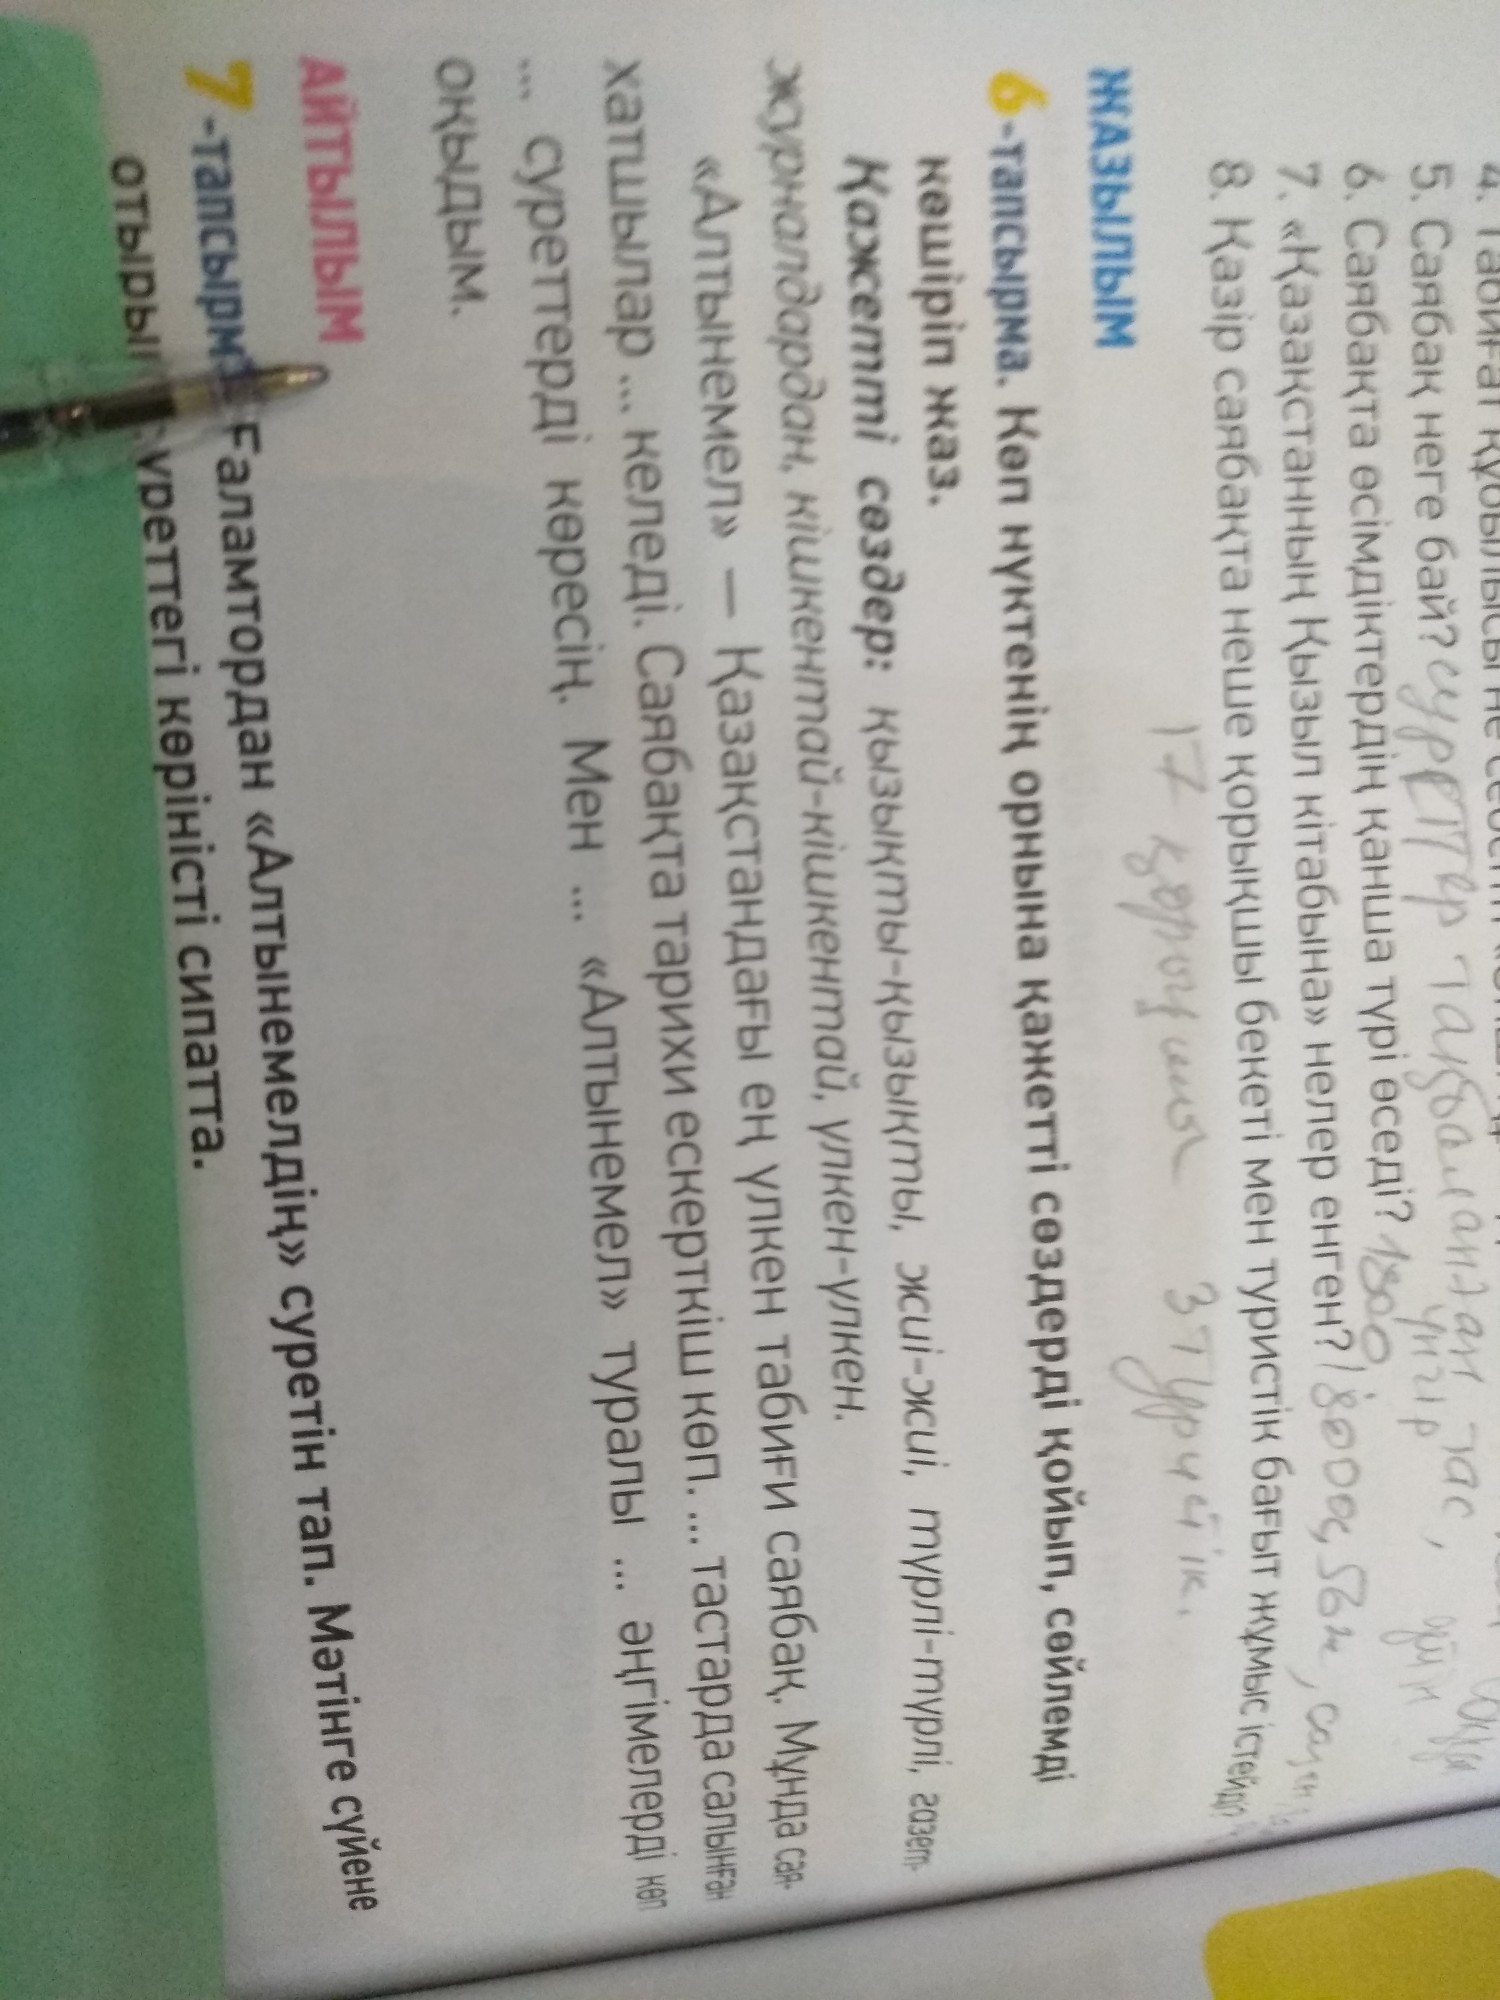 5. Саябақ неге бай? суреттер таңбаланған тас,
6. Саябақта өсімдіктердің қанша түрі өседі? 1800
7. «Қазақстанның Қызыл кітабына» нелер енген?
8. Қазір саябақта неше қорықшы бекеті мен туристік бағыт жұмыс істейді?
17
ЖАЗЫЛЫМ
6-тапсырма. Көп нүктенің орнына қажетті сөздерді қойып, сөйлемді
көшіріп жаз.
Қажетті сөздер: қызықты-қызықты, жиі-жиі, түрлі-түрлі, газет-
журналдардан, кішкентай-кішкентай, үлкен-үлкен.
«Алтынемел» — Қазақстандағы ең үлкен табиғи саябақ. Мұнда сая-
хатшылар ... келеді. Саябақта тарихи ескерткіш көп. ... тастарда салынған
... суреттерді көресің. Мен ... «Алтынемел» туралы ... әңгімелерді көп
оқыдым.
АЙТЫЛЫМ
7-тапсырма. Ғаламтордан «Алтынемелдің» суретін тап. Мәтінге сүйене
суреттегі көріністі сипатта.